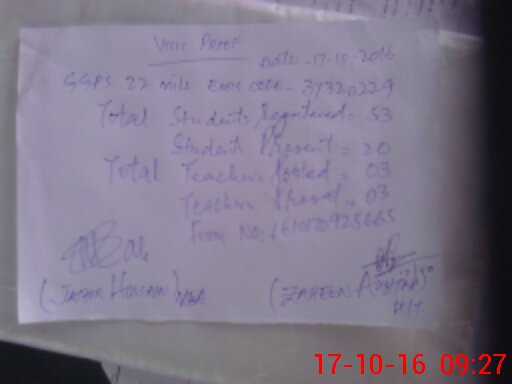 Visit Proof
Date - 17-10-2016
GGPS 22 mile EMIS CODE - 37320229
Total Students Registered = 53
Students Present = 20
Total Teachers Posted = 03
Teachers Present = 03
Form No:
( HUSSAIN ) ( ZAHEEN AKHTAR )
17-10-16 09:27